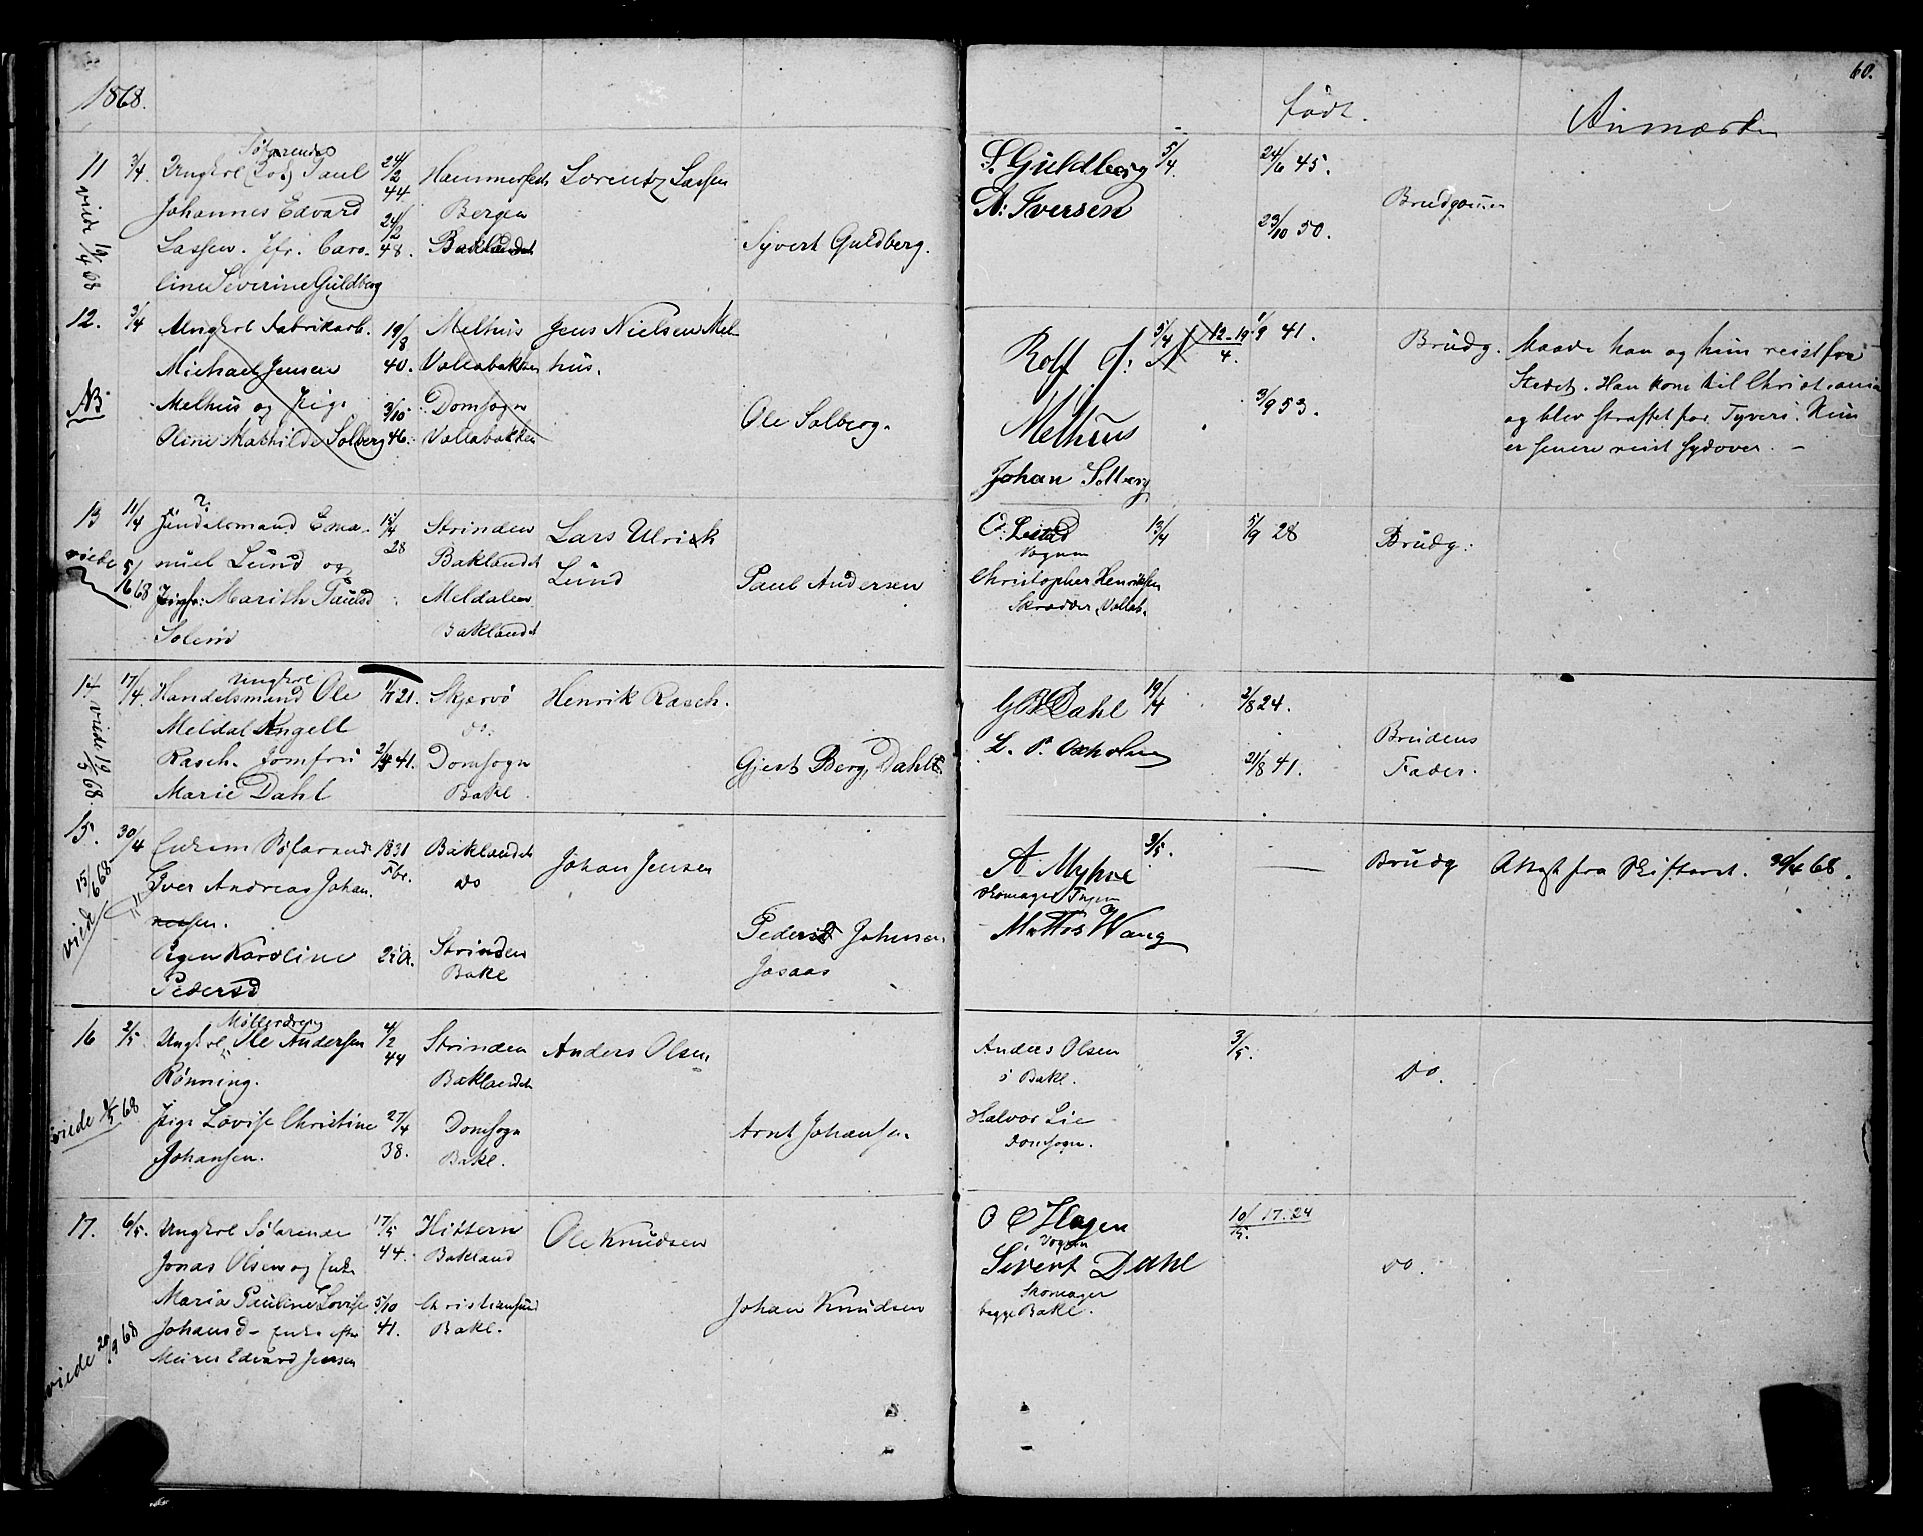 60.
1868.
født.
Anmærkn
11 3/4 Ungkrl Søfarende Paul 24/2 44 Hammerfest Lorentz Lassen
Johannes Edvard Bergen
Lassen. Jfr. Caro- 24/2 48. Baklandet Syvert Guldberg.
line Severine Guldberg
viede 19/4 68
S. Guldberg 5/4. 24/6 45.
A: Iversen 23/10 50. Brudgommen
12. 3/4 Ungkrl Fabrikarb. 19/8 40. Melhus Jens Nielsen Mel
Michael Jensen Vollabakken hus.
NB Melhus og Pige 3/10 46. Domsogn Ole Solberg.
Oline Mathilde Solberg Vollabakken
Rolf J: 5/4 12-19/4. 1/9 41. Brudg. Baade han og hun reist fra
Melhuus 3/9 53. Stedet. Han kom til Christiania
og blev straffet for Tyveri. Hun
Johan Solberg er senere reist sydover. -
13 11/4 Handelsmand Ema- 15/4 28 Strinden Lars Ulrick
nuel Lund og Baklandet Lund
viede 5/6 68 Jomfr: Marith Paulsd Meldalen Paul Andersen
Solem Baklandet
O: Lund 13/4 5/9 28 Brudg:
Vognm
Christopher Henriksen
Skrædder, Vollab.
14 17/4. Ungkrl Handelsmand Ole 1/7 21. Skjervö Henrik Rasch.
Meldal Angell do.
Rasch. Jomfru 2/4 41. Domsogn Gjert Berg Dahl
Marie Dahl Bakl.
viede 19/5 68.
G B Dahl 19/4 2/8 24.
L. P. Oxholm 21/8 41. Brudens
Fader.
15. 30/4 Enkem Søfarend 1831 Fbr. Baklandet Johan Jensen
Iver Andreas Johan do
nessen.
Pigen Karoline 25 A. Strinden Peder Johnsen
Pedersd Bakl Jøsaas
viede 15/6 68
A. Myhre 3/5. Brudg Attest fra Skifteret. 30/4 68.
Skomager
Mattis Wang
16 2/5. Ungkrl Møllersvend Ole Andersen 4/2 44 Strinden Anders Olsen
Rønning. Baklandet
Pige Lovise Christine 27/4 38. Domsogn Arnt Johansen
Johansen. Bakl.
viede 68
Anders Olsen 3/5. do.
Bakl.
Halvor Lie
Domsogn.
17. 6/5. Ungkrl Søfarende 17/5 44. Hittern Ole Knudsen
Jonas Olsen og Enke Bakland
Maria Pauline Lovise 5/10 41. Christiansund Johan Knudsen
Johansd - Enke efter Bakl.
Edvard Jensen
viede 20/9 68
O C Hagen 10/5. 17. 24
Vognm
Sivert Dahl do.
Skomager
begge Bakl.